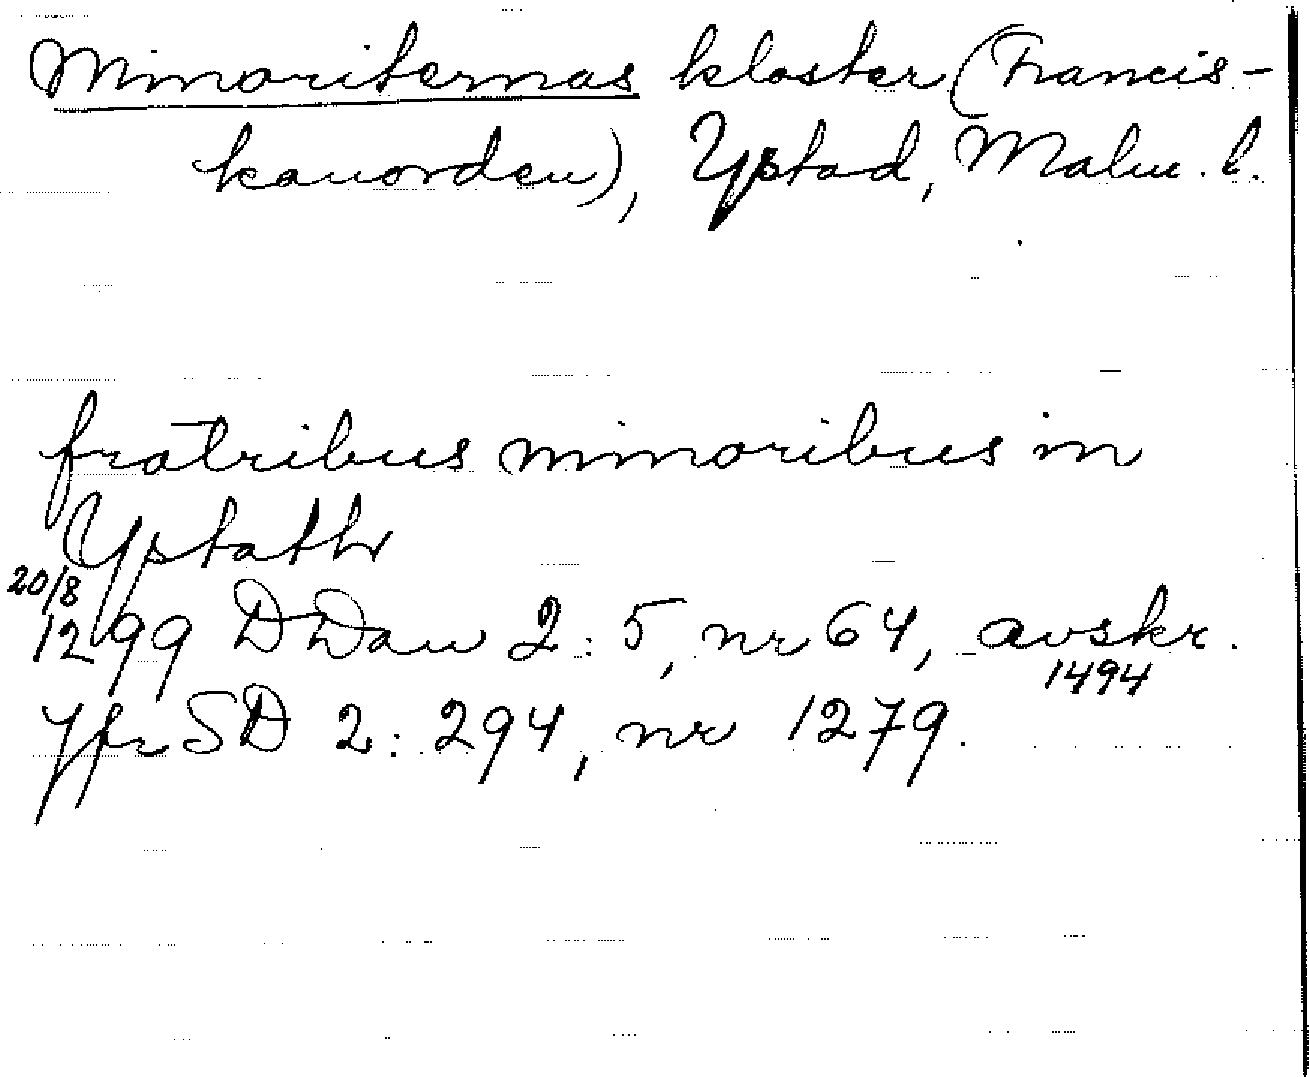 Minoriternas kloster (Francis-
kanorden), Ystad, Malm. l.
fratribus minoribus in
Ystathr
20/8
1299 DDan 2:5, nr 64, avskr.
1494
Jfr SD 2:294, nr 1279.